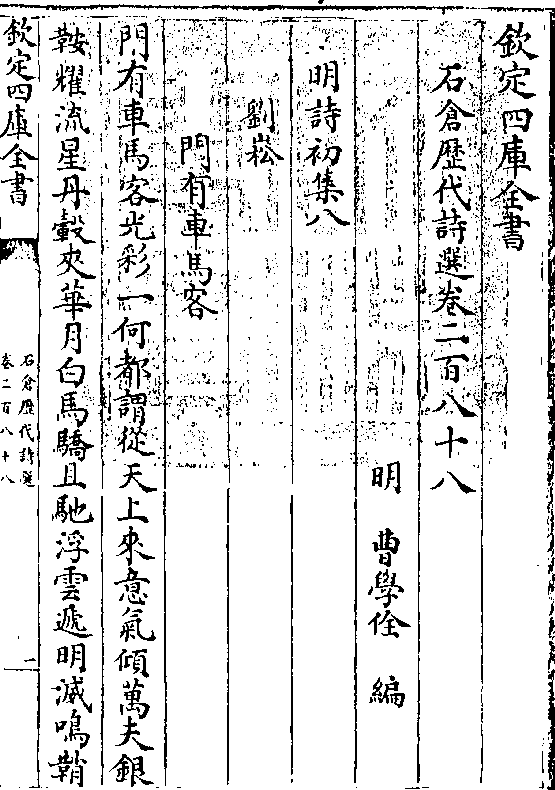 欽定四庫全書
石倉歷代詩選卷二百八十八
明 曹學佺 編
明詩初集八
劉崧
門有車馬客
門有車馬客光彩一何都謂從天上來意氣傾萬夫銀
鞍耀流星丹轂夾華月白馬驕且馳浮雲遞明滅鳴鞘
欽定四庫全書
石倉歷代詩選
卷二百八十八
一